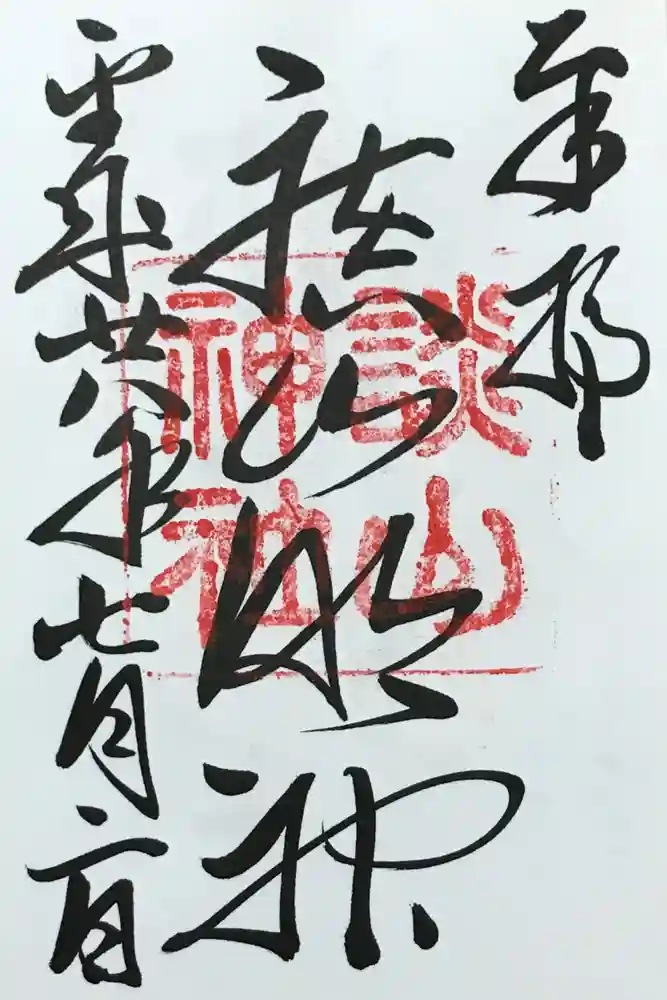 奉拝
談山明神
平成廿八年七月二日
談山
神社